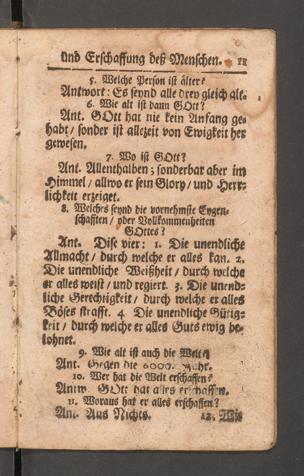 und Erschaffung deß Menschen. 11
5. Welche Person ist älter?
Antwort: Es seynd alle drey gleich alt.
6. Wie alt ist dann GOtt?
Ant. GOtt hat nie kein Anfang ge-
habt / sonder ist allzeit von Ewigkeit her
gewesen.
7. Wo ist GOtt?
Ant. Allenthalben; sonderbar aber im
Himmel / allwo er sein Glory / und Herr-
lichkeit erzeiget.
8. Welches seynd die vornehmste Eygen-
schafften / oder Vollkommenheiten
GOttes?
Ant. Dise vier: 1. Die unendliche
Allmacht / durch welche er alles kan. 2.
Die unendliche Weißheit / durch welche
er alles weist / und regiert. 3. Die unend-
liche Gerechtigkeit / durch welche er alles
Böses strafft. 4 Die unendliche Gütig-
keit / durch welche er alles Guts ewig be-
lohnet.
9. Wie alt ist auch die Welt?
Ant. Gegen die 6000. Jahr.
10. Wer hat die Welt erschaffen?
Antw. GOtt hat alles erschaffen.
11. Woraus hat er alles erschaffen?
Ant. Aus Nichts. 12. Wie